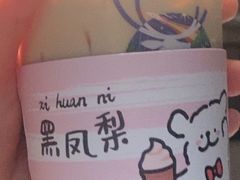 xi huan ni
黑凤梨